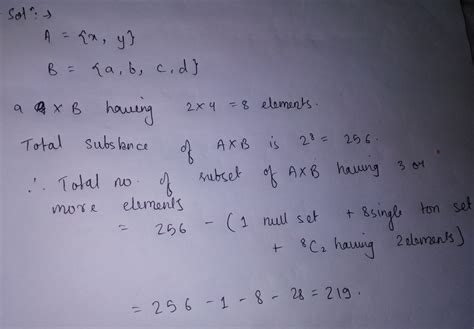 Sol^n :→
A = {x, y}
B = {a, b, c, d}
A × B having 2×4 = 8 elements.
Total substance of A×B is 2^8 = 256.
∴ Total no. of subset of A×B having 3 or
more elements
= 256 - (1 null set + 8 single ton set
+ ^8C_2 having 2 elements)
= 256 - 1 - 8 - 28 = 219.